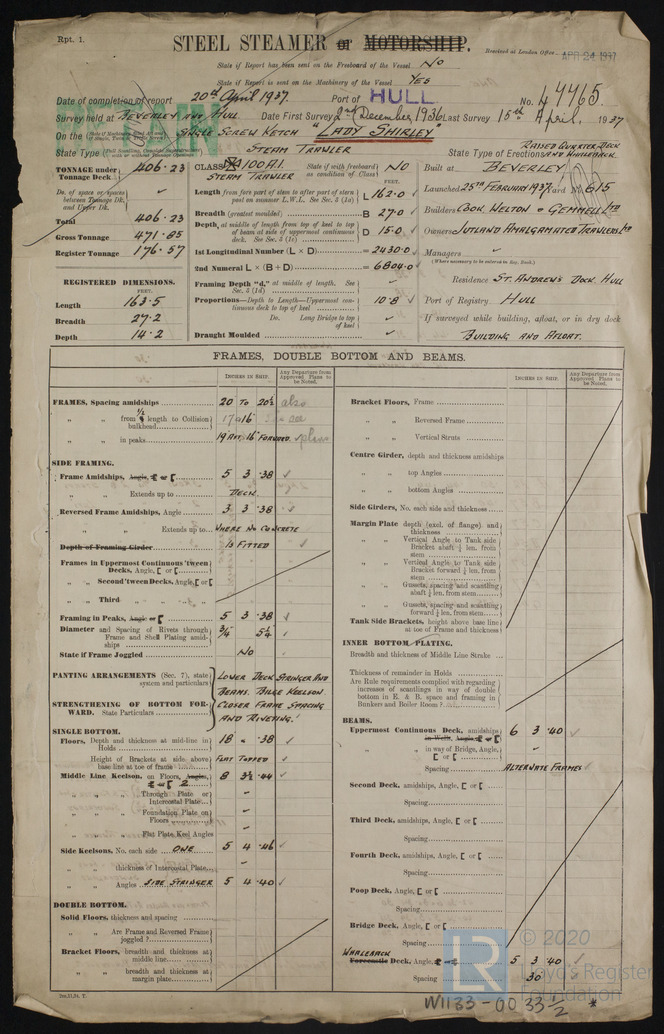 Rpt. 1.
STEEL STEAMER or MOTORSHIP.
Received at London Office APR 24 1937
State if Report has been sent on the Freeboard of the Vessel No
State if Report is sent on the Machinery of the Vessel YES
Date of completion of report 20th April 1937. Port of HULL No. 44465
Survey held at BEVERLEY AND HULL Date First Survey 2nd December 1936 Last Survey 15th April, 1937
On the SINGLE SCREW KETCH "LADY SHIRLEY"
State Type STEAM TRAWLER State Type of Erections RAISED QUARTER DECK AND WHALEBACK.
TONNAGE under Tonnage Deck 406·23
Do. of space or spaces between Tonnage Dk. and Upper Dk.
Total 406·23
Gross Tonnage 471·85
Register Tonnage 176·57
REGISTERED DIMENSIONS.
FEET.
Length 163·5
Breadth 27·2
Depth 14·2
CLASS 100 A.1. State if with freeboard as condition of Class No
STEAM TRAWLER
FEET.
Length from fore part of stem to after part of stern post on summer L.W.L. See Sec. 3 (1a) 162·0
Breadth (greatest moulded) B 27·0
Depth, at middle of length from top of keel to top of beam at side of uppermost continuous deck. See Sec. 3 (1c) D 15·0
1st Longitudinal Number (L × D) = 2430·0
2nd Numeral L × (B + D) = 6804·0
Framing Depth "d," at middle of length. See Sec. 3 (1d)
Proportions—Depth to Length—Uppermost continuous deck to top of keel 10·8
Do. Long Bridge to top of keel
Draught Moulded
Built at BEVERLEY
Launched 25TH FEBRUARY 1937 Yard No. 615
Builders COOK, WELTON & GEMMELL LTD
Owners JUTLAND AMALGAMATED TRAWLERS LTD
Managers
(Where necessary to be entered in Reg. Book.)
Residence ST. ANDREWS DOCK HULL
Port of Registry HULL
If surveyed while building, afloat, or in dry dock
BUILDING AND AFLOAT.
FRAMES, DOUBLE BOTTOM AND BEAMS.
INCHES IN SHIP. Any Departure from Approved Plans to be Noted.
FRAMES, Spacing amidships 20 TO 20½ also
" " from ½ length to Collision bulkhead 17 16
" " in peaks 19 AFT, 16 FORWARD. plans
SIDE FRAMING.
Frame Amidships, Angle, E or [ 5 3 ·38
" " Extends up to DECK
Reversed Frame Amidships, Angle 3 3 ·38
" " Extends up to WHERE NO CONCRETE
Depth of Framing Girder IS FITTED
Frames in Uppermost Continuous 'tween Decks, Angle, [ or [
" " Second 'tween Decks, Angle, [ or [
" " Third
Framing in Peaks, Angle or [ 5 3 ·38
Diameter and Spacing of Rivets through Frame and Shell Plating amidships ¾ 5¼
State if Frame Joggled NO
PANTING ARRANGEMENTS (Sec. 7), state system and particulars
STRENGTHENING OF BOTTOM FORWARD. State Particulars
LOWER DECK STRINGER AND
BEAMS. BILGE KEELSON.
CLOSER FRAME SPACING
AND RIVETING.
SINGLE BOTTOM.
Floors, Depth and thickness at mid-line in Holds 18 " ·38
Height of Brackets at side above base line at toe of frame FLAT TOPPED
Middle Line Keelson, on Floors, Angles, [ or [ 2 8 3½ ·44
" " Through Plate or Intercostal Plate
" " Foundation Plate on Floors
" " Flat Plate Keel Angles
Side Keelsons, No. each side ONE 5 4 ·46
" " thickness of Intercostal Plate
" " Angles SIDE STRINGER 5 4 ·40
DOUBLE BOTTOM.
Solid Floors, thickness and spacing
" " Are Frame and Reversed Frame joggled ?
Bracket Floors, breadth and thickness at middle line
" " breadth and thickness at margin plate
INCHES IN SHIP. Any Departure from Approved Plans to be Noted.
Bracket Floors, Frame
" " Reversed Frame
" " Vertical Struts
Centre Girder, depth and thickness amidships
" " top Angles
" " bottom Angles
Side Girders, No. each side and thickness
Margin Plate depth (excl. of flange) and thickness
" " Vertical Angle to Tank side Bracket abaft ¼ len. from stem
" " Vertical Angle to Tank side Bracket forward ¼ len. from stem
" " Gussets, spacing and scantling abaft ¼ len. from stem
" " Gussets, spacing and scantling forward ¼ len. from stem
Tank Side Brackets, height above base line at toe of Frame and thickness
INNER BOTTOM PLATING.
Breadth and thickness of Middle Line Strake
Thickness of remainder in Holds
Are Rule requirements complied with regarding increases of scantlings in way of double bottom in E. & B. space and framing in Bunkers and Boiler Room ?
BEAMS.
Uppermost Continuous Deck, amidships 6 3 ·40
in Wells, Angle, [ or [
" " in way of Bridge, Angle, [ or [
Spacing ALTERNATE FRAMES
Second Deck, amidships, Angle, [ or [
Spacing
Third Deck, amidships, Angle, [ or [
Spacing
Fourth Deck, amidships, Angle, [ or [
Spacing
Poop Deck, Angle, [ or [
Spacing
Bridge Deck, Angle, [ or [
Spacing
WHALEBACK
Forecastle Deck, Angle, [ or [ 5 3 ·40
Spacing 30
© 2020
Lloyd's Register
Foundation
W1133-0033½ *